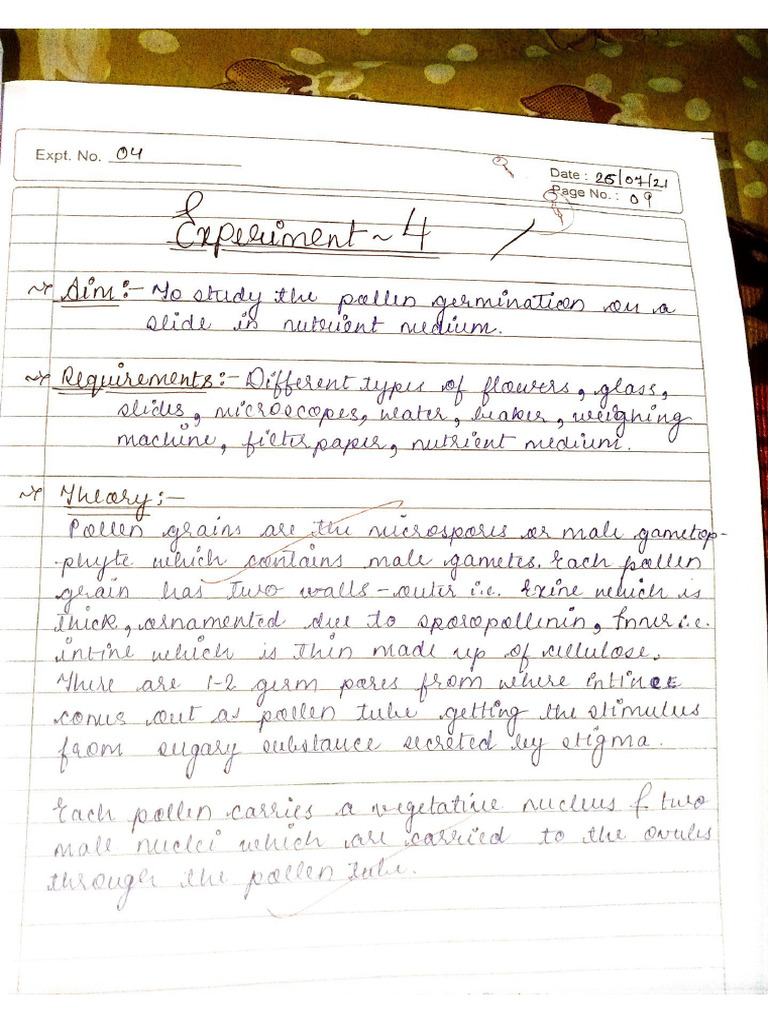 Expt. No. 04
Date : 25/07/21
Page No. : 09
Experiment ~ 4
Aim :- To study the pollen germination on a
slide in nutrient medium.
Requirements :- Different types of flowers, glass,
slides, microscopes, water, beaker, weighing
machine, filter paper, nutrient medium.
Theory :-
Pollen grains are the microspores or male gametop-
-phyte which contains male gametes. Each pollen
grain has two walls - outer i.e. Exine which is
thick, ornamented due to sporopollenin, Inner i.e.
intine which is thin made up of cellulose.
There are 1-2 germ pores from where intine
comes out as pollen tube getting the stimulus
from sugary substance secreted by stigma.
Each pollen carries a vegetative nucleus & two
male nuclei which are carried to the ovules
through the pollen tube.